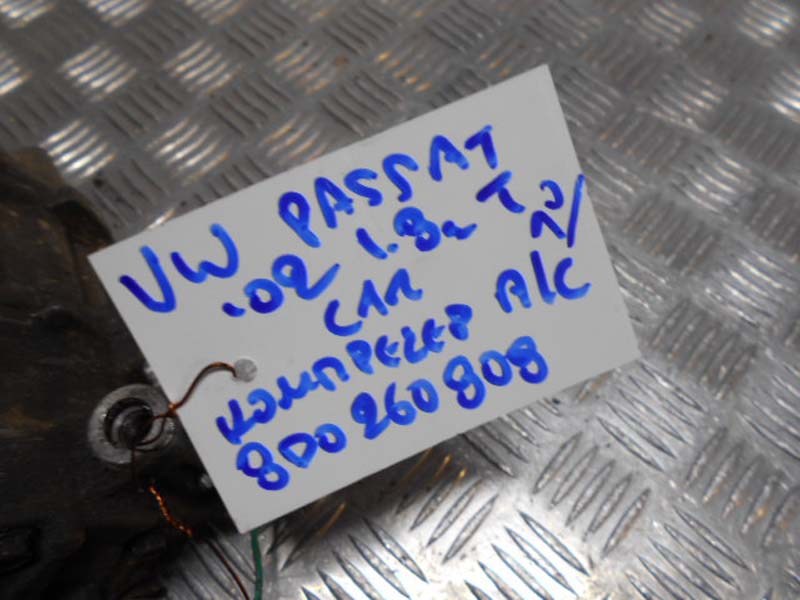 VW PASSAT
.02 1.8 T
КОМПРЕСЕР A/C
8D0 260 808